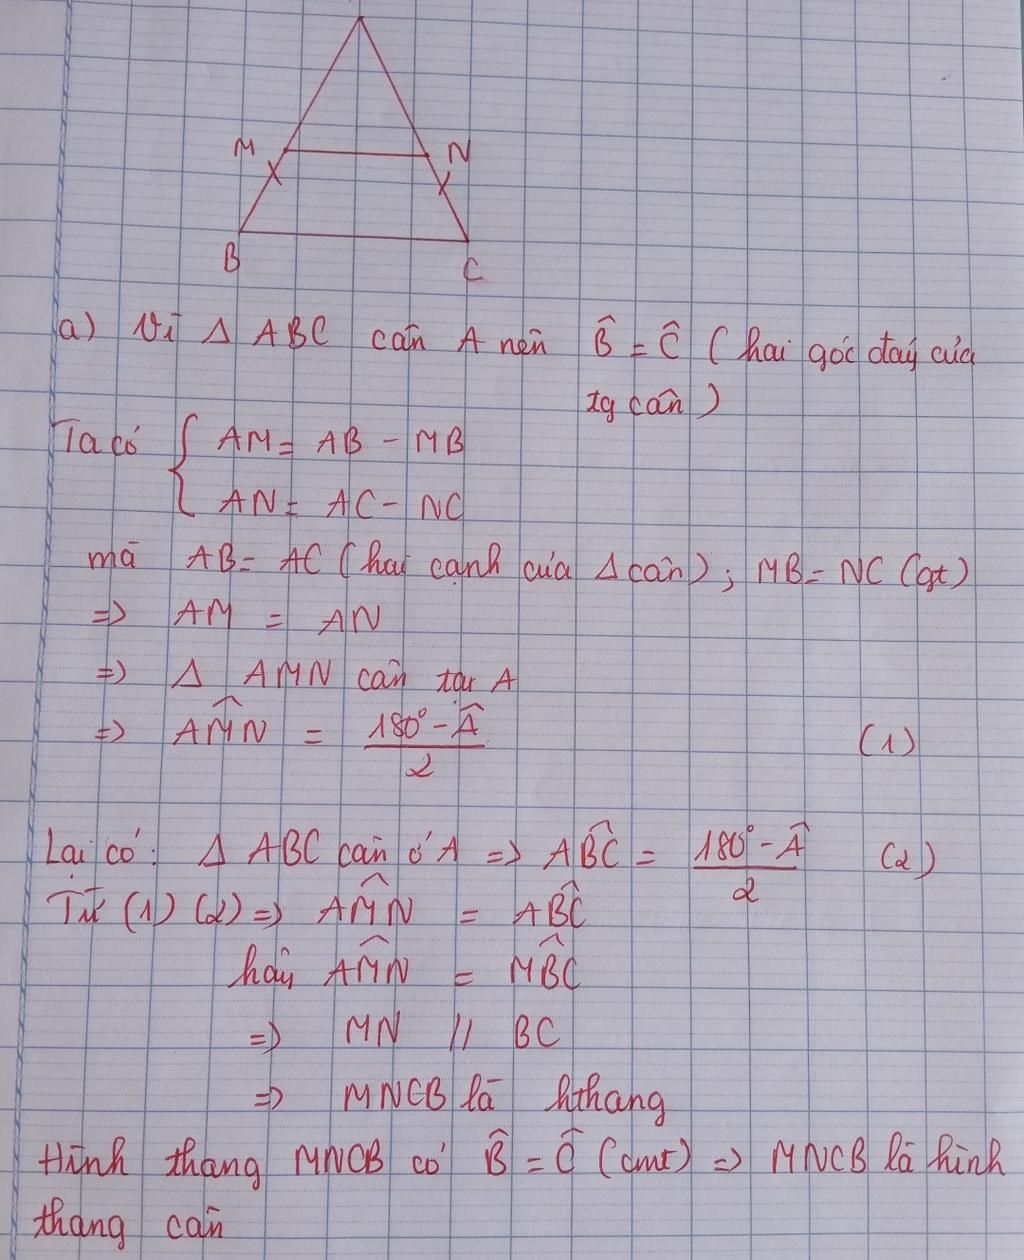 M N
B C
a) Vì Δ ABC cân A nên B̂ = Ĉ (hai góc đáy của
tg cân)
Ta có { AM = AB - MB
AN = AC - NC
mà AB = AC (hai cạnh của Δ cân); MB = NC (gt)
=> AM = AN
=> Δ AMN cân tại A
=> AM̂N = (180° - Â)/2 (1)
Lại có: Δ ABC cân ở A => AB̂C = (180° - Â)/2 (2)
Từ (1) (2) => AM̂N = AB̂C
hay AM̂N = MB̂C
=> MN // BC
=> MNCB là hthang
Hình thang MNCB có B̂ = Ĉ (cmt) => MNCB là hình
thang cân